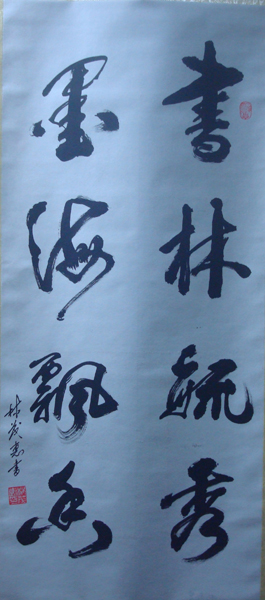 書林毓秀
墨海飄香
林茂忠書